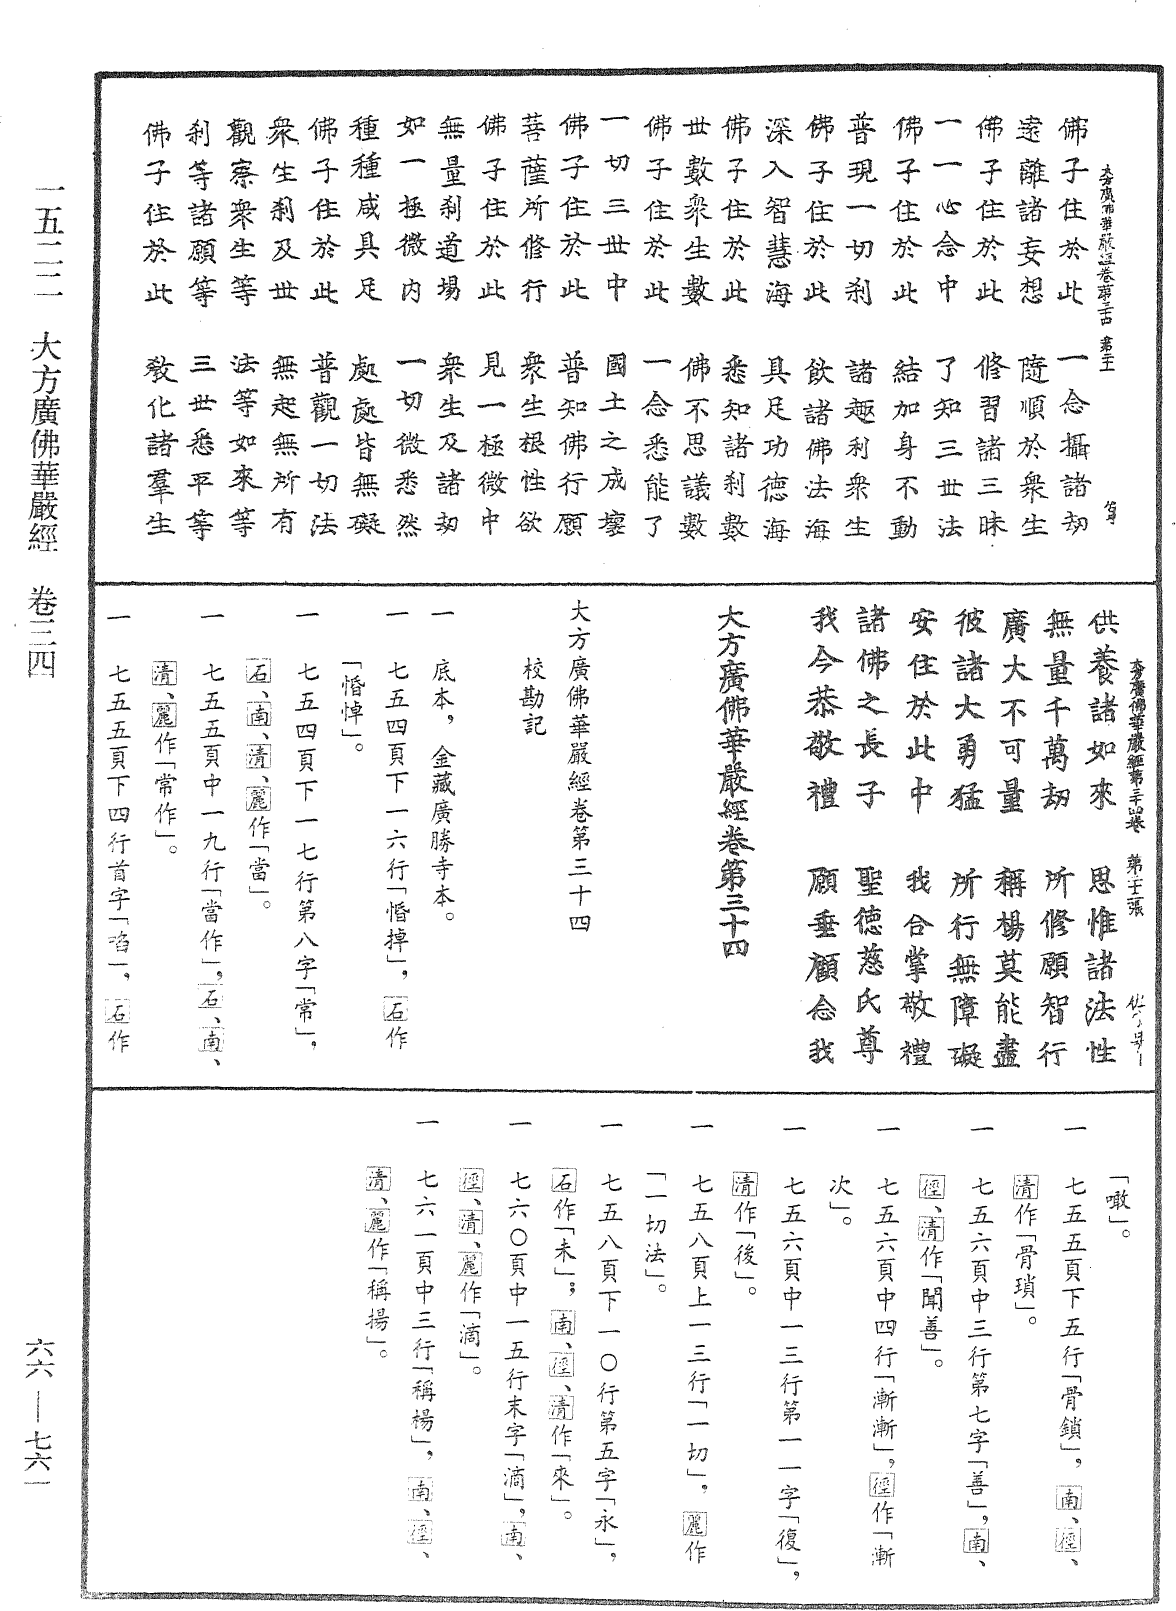 佛子住於此　一念攝諸劫
遠離諸妄想　隨順於衆生
佛子住於此　修習諸三昧
一一心念中　了知三世法
佛子住於此　結加身不動
普現一切刹　諸趣利衆生
佛子住於此　飲諸佛法海
深入智慧海　具足功德海
佛子住於此　悉知諸刹數
世數衆生數　佛不思議數
佛子住於此　一念悉能了
一切三世中　國土之成壞
佛子住於此　普知佛行願
菩薩所修行　衆生根性欲
佛子住於此　見一極微中
無量刹道場　衆生及諸劫
如一極微内　一切微悉然
種種咸具足　處處皆無礙
佛子住於此　普觀一切法
衆生刹及世　無起無所有
觀察衆生等　法等如來等
刹等諸願等　三世悉平等
佛子住於此　教化諸羣生
供養諸如來　思惟諸法性
無量千萬劫　所修願智行
廣大不可量　稱楊莫能盡
彼諸大勇猛　所行無障礙
安住於此中　我合掌敬禮
諸佛之長子　聖德慈氏尊
我今恭敬禮　願垂顧念我
大方廣佛華嚴經卷第三十四
大方廣佛華嚴經卷第三十四
校勘記
一　底本，金藏廣勝寺本。
一　七五四頁下一六行「惛掉」，石作
「惛悼」。
一　七五四頁下一七行第八字「常」，
石、南、清、麗作「當」。
一　七五五頁中一九行「當作」，石、南、
清、麗作「常作」。
一　七五五頁下四行首字「啗」，石作
「噉」。
一　七五五頁下五行「骨鎖」，南、徑、
清作「骨瑣」。
一　七五六頁中三行第七字「善」，南、
徑、清作「聞善」。
一　七五六頁中四行「漸漸」，徑作「漸
次」。
一　七五六頁中一三行第一一字「復」，
清作「後」。
一　七五八頁上一三行「一切」，麗作
「一切法」。
一　七五八頁下一〇行第五字「永」，
石作「未」；南、徑、清作「來」。
一　七六〇頁中一五行末字「滴」，南、
徑、清、麗作「滴」。
一　七六一頁中三行「稱楊」，南、徑、
清、麗作「稱揚」。
一五二二　大方廣佛華嚴經　卷三四
六六——七六一